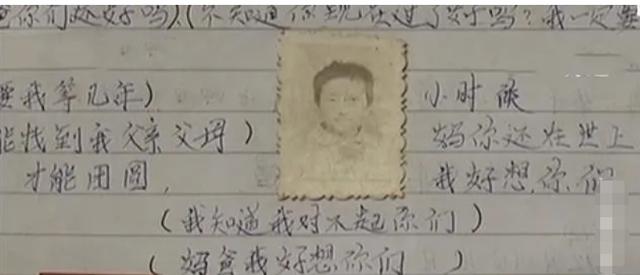 你们还好吗)(不知道你现在过了好吗?我一定要
要我等几年) 小时候
能找到我父亲父母) 妈你还在世上
才能团圆, 我好想你们
(我知道我对不起你们)
(妈爸我好想你们)